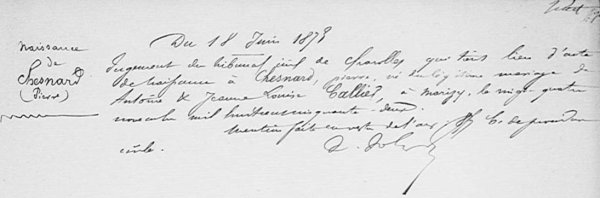 Naissance
de
Chesnard
(Pierre)
Du 18 Juin 1873
Jugement du tribunal civil de Charolles qui tient lieu d'acte
de naissance à Chesnard, pierre, né du légitime mariage de
Antoine & Jeanne Louise Callied, à Marizy, le vingt quatre
novembre mil huit cent cinquante deux.
Mention faite en vertu de l'art. C. de procédure
civile.